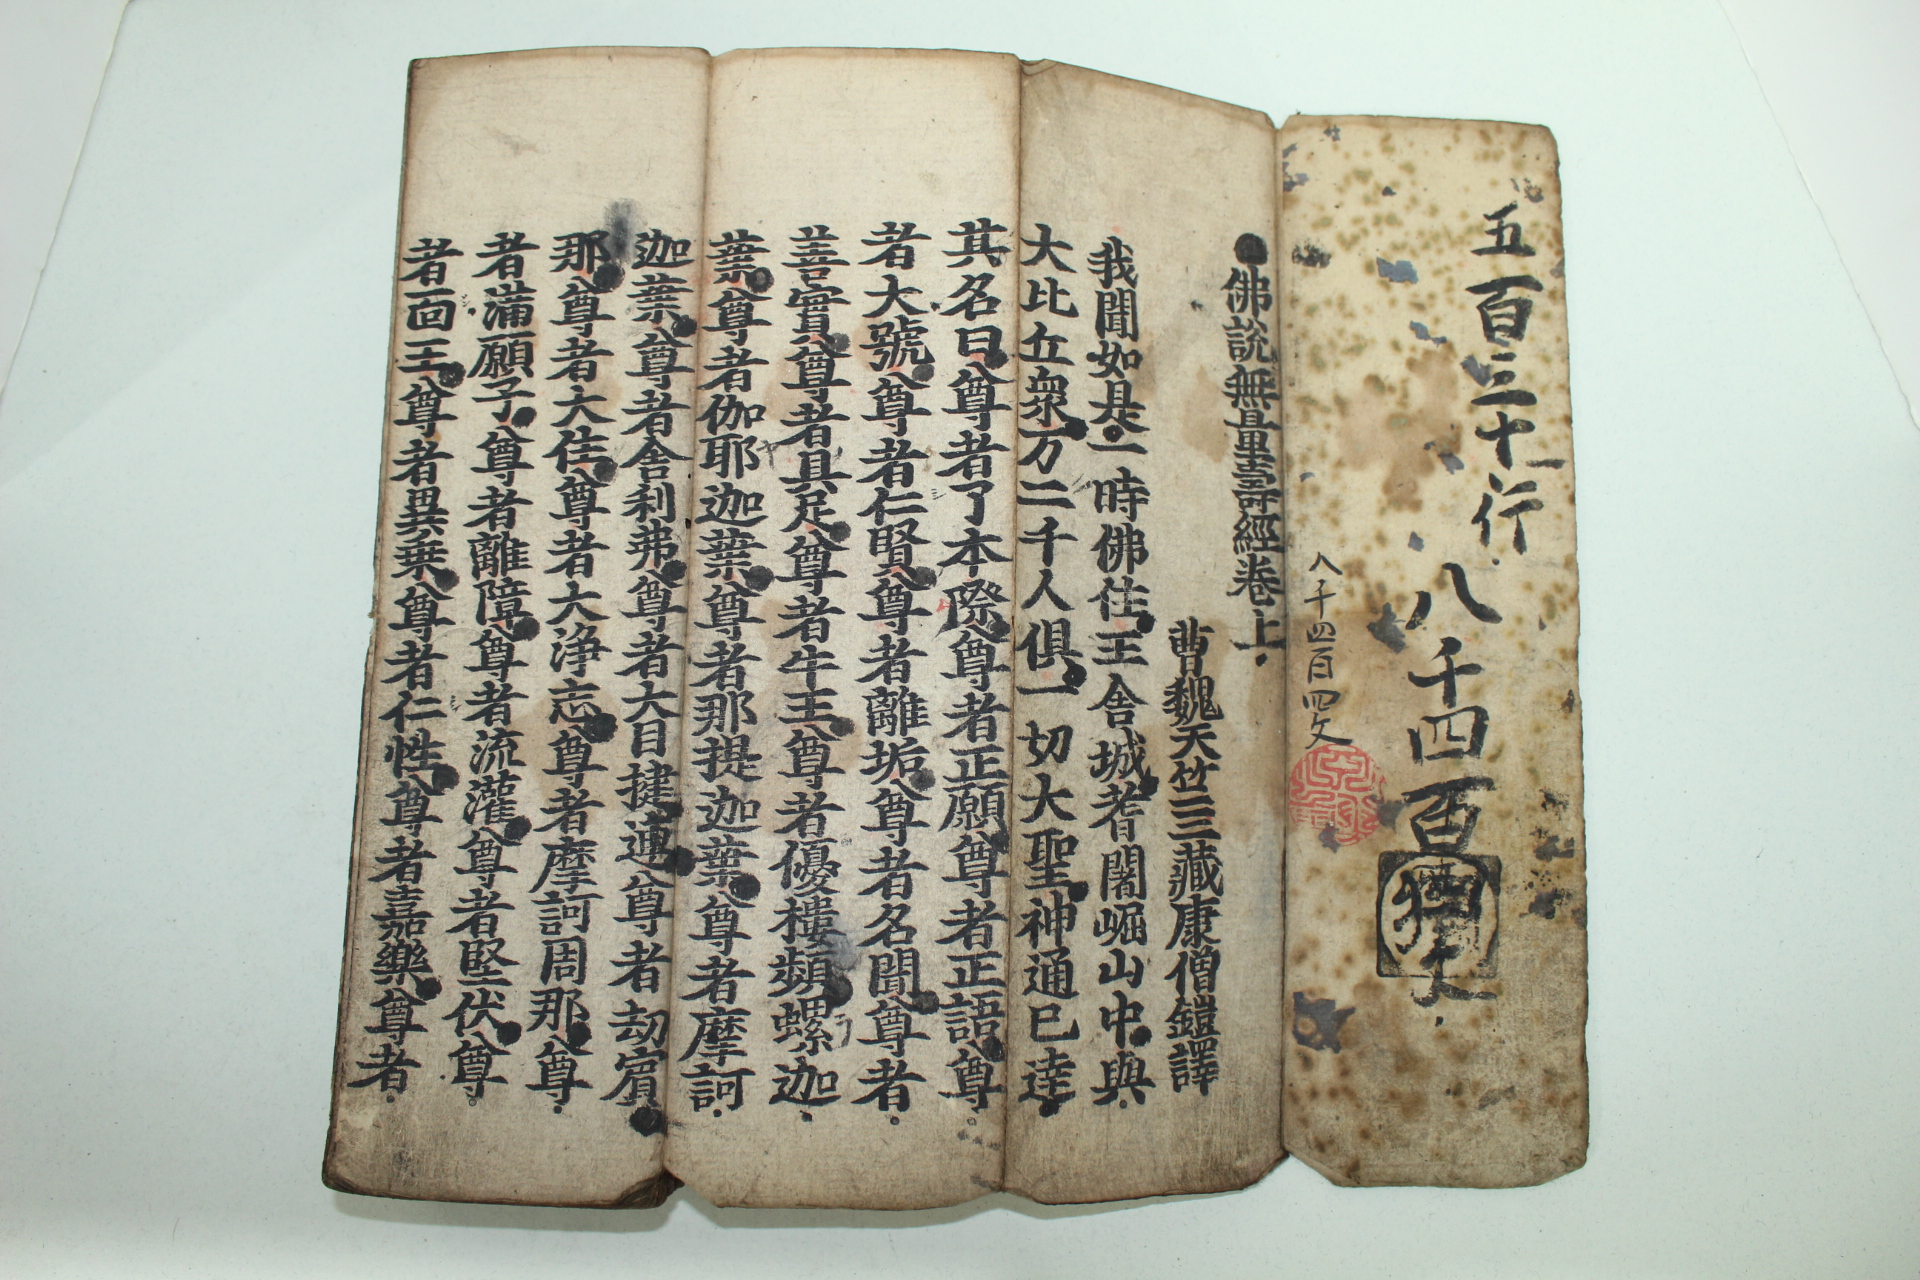 五百三十行
八千四百
八千四百四文
佛說無量壽經卷上
曹魏天竺三藏康僧鎧譯
我聞如是一時佛住王舍城耆闍崛山中與
大比丘衆万二千人俱一切大聖神通已達
其名曰尊者了本際尊者正願尊者正語尊
者大號尊者仁賢尊者離垢尊者名聞尊者
善實尊者具足尊者牛王尊者優樓頻螺迦
葉尊者伽耶迦葉尊者那提迦葉尊者摩訶
迦葉尊者舍利弗尊者大目揵連尊者劫賓
那尊者大住尊者大浄志尊者摩訶周那尊
者滿願子尊者離障尊者流灌尊者堅伏尊
者面王尊者異乗尊者仁性尊者嘉樂尊者